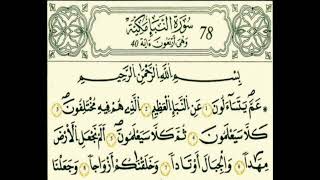 سُورَةُ النَّبَإِ مَكِّيَّة 78
وَهِيَ أَرْبَعُونَ آيَة 40
بِسْمِ اللَّهِ الرَّحْمَٰنِ الرَّحِيمِ
عَمَّ يَتَسَاءَلُونَ ۝ عَنِ النَّبَإِ الْعَظِيمِ ۝ الَّذِي هُمْ فِيهِ مُخْتَلِفُونَ ۝
كَلَّا سَيَعْلَمُونَ ۝ ثُمَّ كَلَّا سَيَعْلَمُونَ ۝ أَلَمْ نَجْعَلِ الْأَرْضَ
مِهَادًا ۝ وَالْجِبَالَ أَوْتَادًا ۝ وَخَلَقْنَاكُمْ أَزْوَاجًا ۝ وَجَعَلْنَا